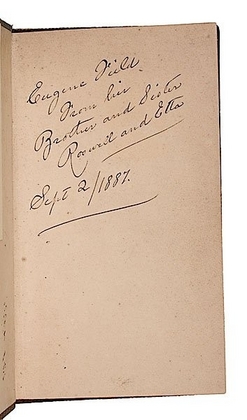 Eugene Field.
From his
Brother and Sister
Roswell and Etta
Sept 2/1887.